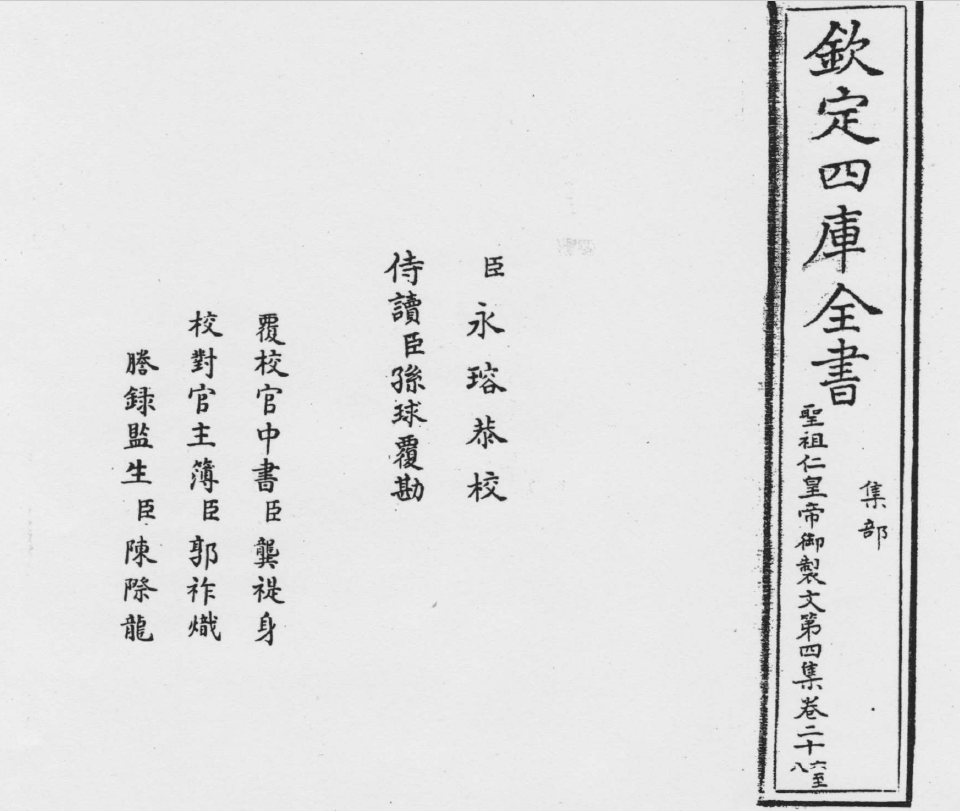 欽定四庫全書
集部
聖祖仁皇帝御製文第四集卷二十六至八
臣永瑢恭校
侍讀臣孫球覆勘
覆校官中書臣龔禔身
校對官主簿臣郭祚熾
謄錄監生臣陳際龍